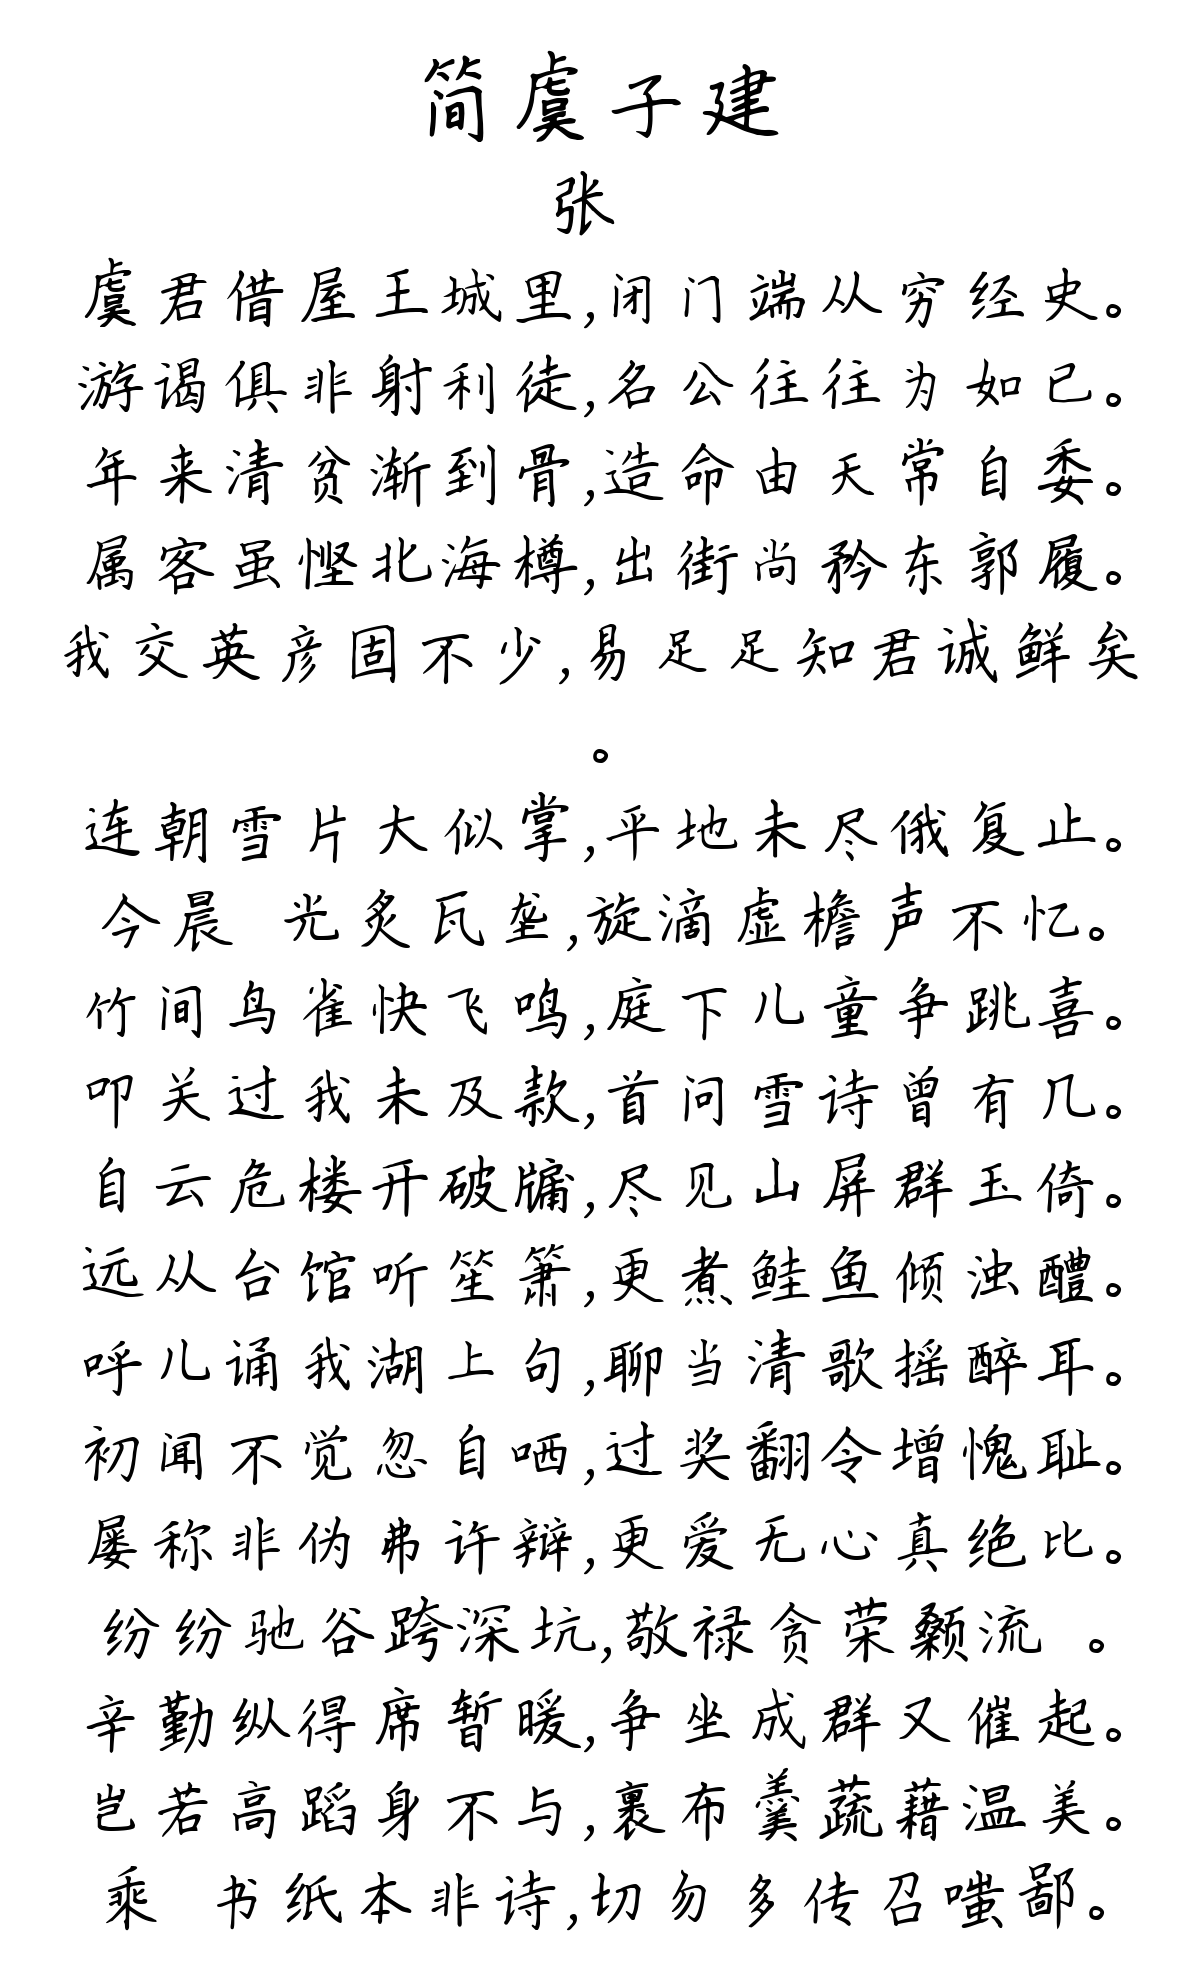 简虞子建
张
虞君借屋王城里,闭门端从穷经史。
游谒俱非射利徒,名公往往为如已。
年来清贫渐到骨,造命由天常自委。
属客虽悭北海樽,出街尚矜东郭履。
我交英彦固不少,易足足知君诚鲜矣
。
连朝雪片大似掌,平地未尽俄复止。
今晨 光炙瓦垄,旋滴虚檐声不忆。
竹间鸟雀快飞鸣,庭下儿童争跳喜。
叩关过我未及款,首问雪诗曾有几。
自云危楼开破牖,尽见山屏群玉倚。
远从台馆听笙箫,更煮鲑鱼倾浊醴。
呼儿诵我湖上句,聊当清歌摇醉耳。
初闻不觉忽自哂,过奖翻令增愧耻。
屡称非伪弗许辩,更爱无心真绝比。
纷纷驰谷跨深坑,敬禄贪荣颡流 。
辛勤纵得席暂暖,争坐成群又催起。
岂若高蹈身不与,裹布羹蔬藉温美。
乘 书纸本非诗,切勿多传召嗤鄙。